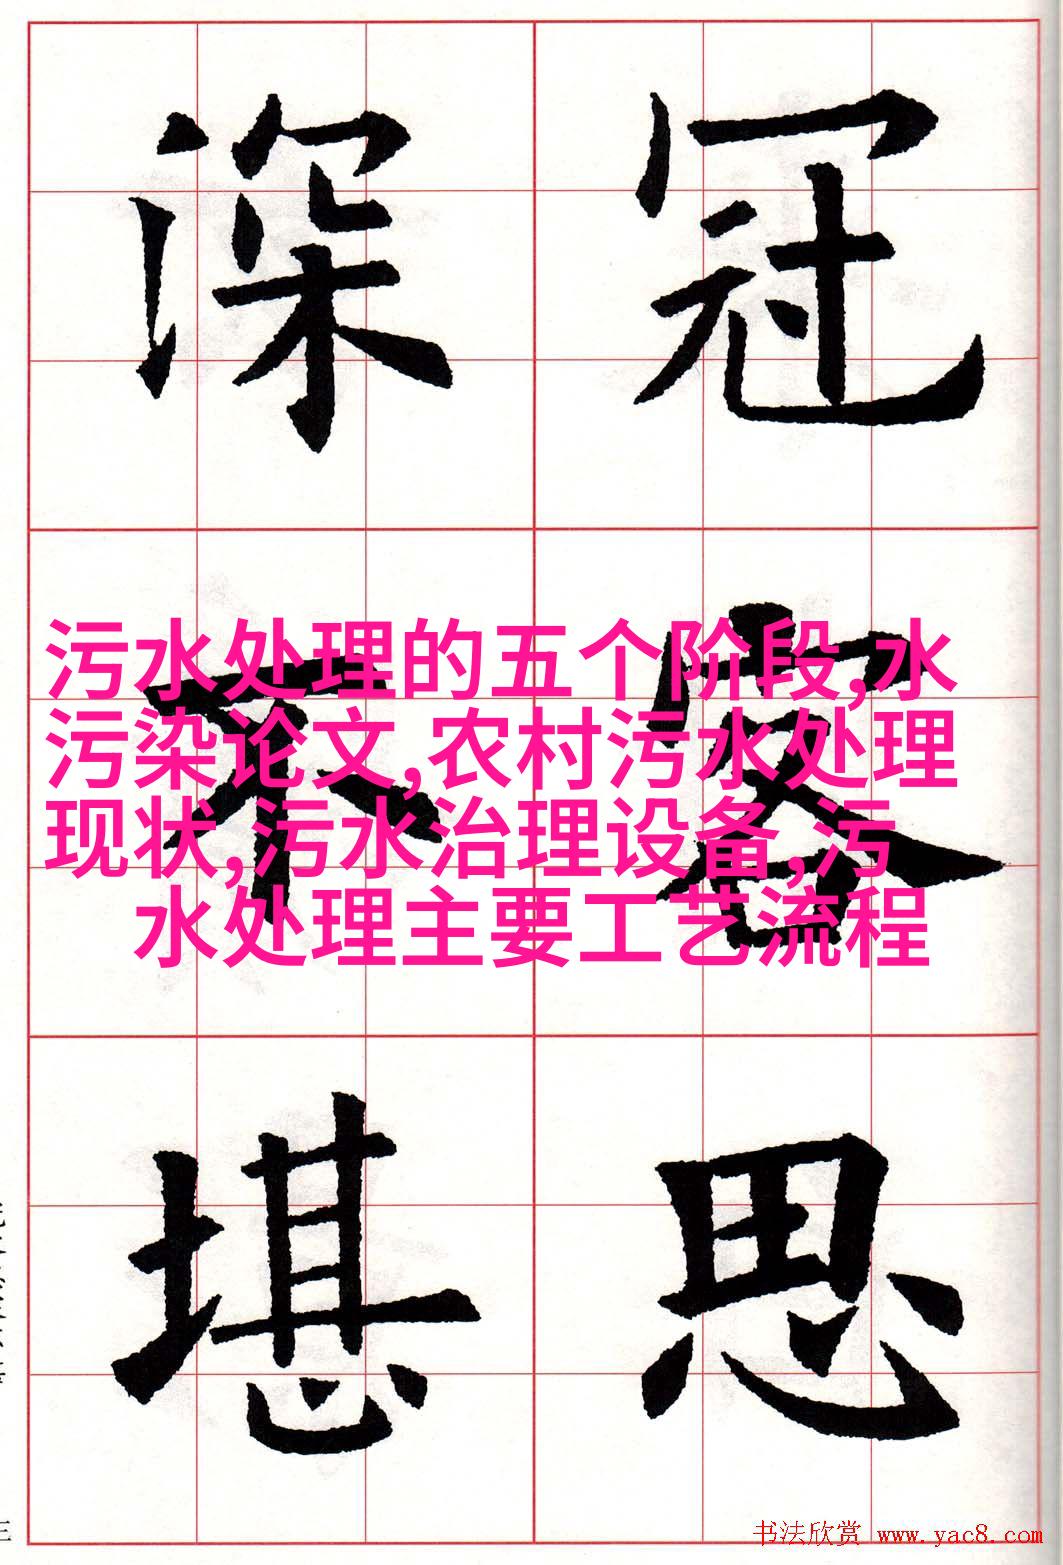 深冠
不容
堪思
污水处理的五个阶段,水
污染论文,农村污水处理
现状,污水治理设备,污
水处理主要工艺流程
三
书法欣赏 www.yac8.com